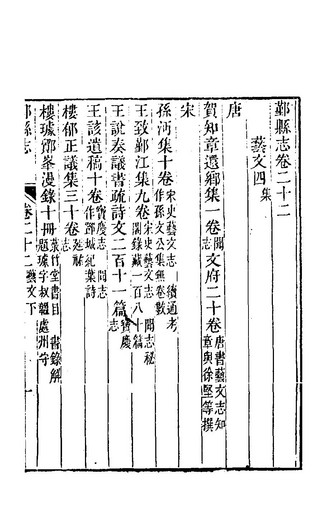 鄞縣志卷二十二
藝文四集
唐
賀知章遺鄉集一卷聞志文府二十卷唐書藝文志知章與徐堅等撰
宋
孫沔集十卷宋史藝文志續通考作孫文公集無卷數
王致鄞江集九卷宋史藝文志聞志祕閣錄藏一百八十篇
王說奏議書疏詩文二百十一篇寶慶志
王該遺稿十卷寶慶志聞志作鄞城紀葉詩
樓郁正議集三十卷菉竹堂書目書錄解題延祐志
樓璩鄮峯漫錄十冊題璩字叔韞處州守
鄞縣志
卷二十二藝文下
一